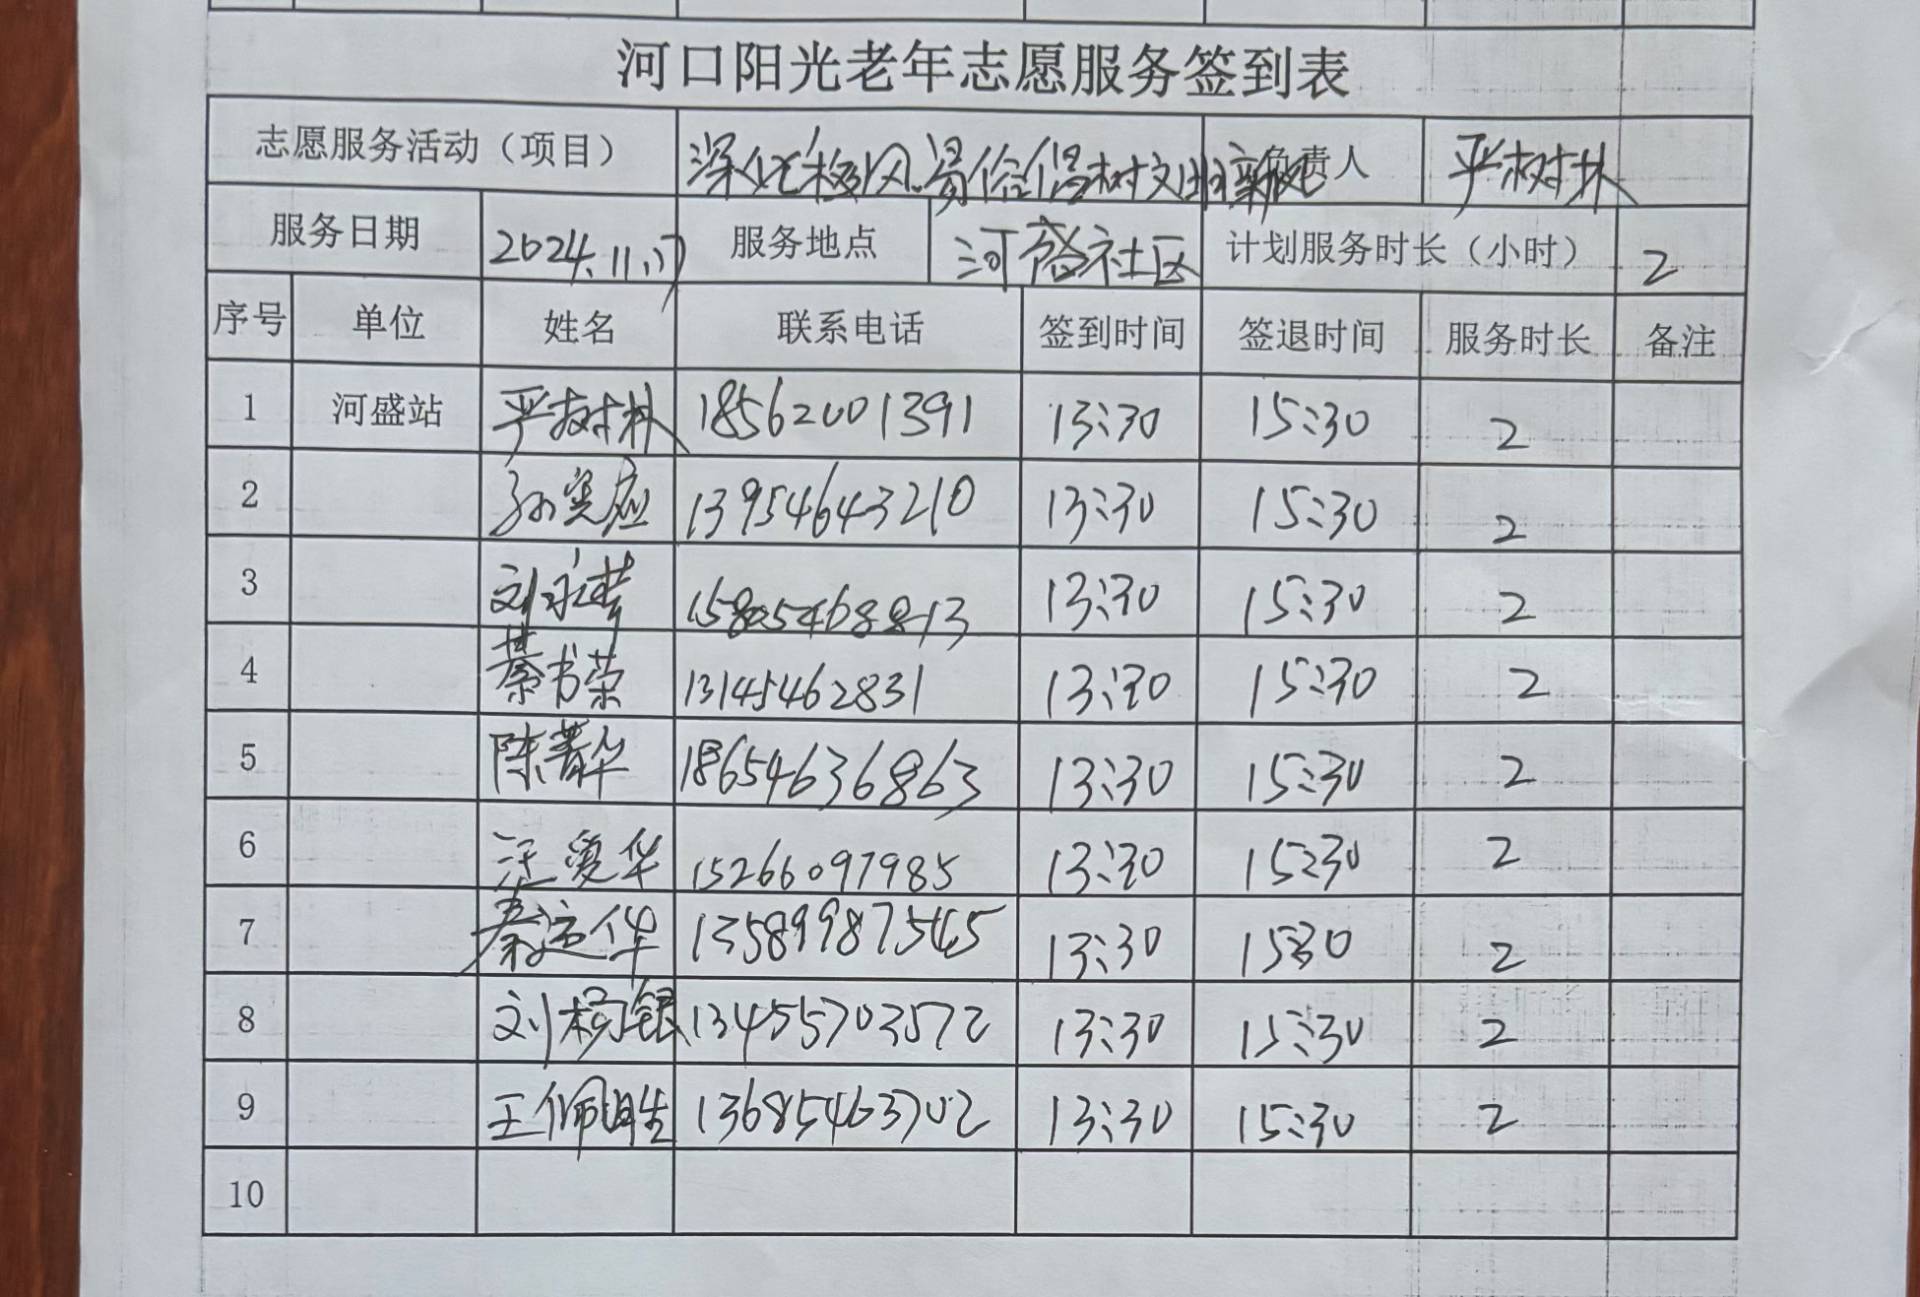 河口阳光老年志愿服务签到表
志愿服务活动（项目） 深化移风易俗倡树文明新风 负责人 严树林
服务日期 2024.11.17 服务地点 河 社区 计划服务时长（小时） 2
序号 单位 姓名 联系电话 签到时间 签退时间 服务时长 备注
1 河盛站 严树林 18562001391 13:30 15:30 2
2 孙宪应 13954643210 13:30 15:30 2
3 刘永芳 15805468813 13:30 15:30 2
4 綦书荣 13145462831 13:30 15:30 2
5 陈菁华 18654636863 13:30 15:30 2
6 汪爱华 15266097985 13:30 15:30 2
7 秦运华 13589987545 13:30 15:30 2
8 刘 银 13455703572 13:30 15:30 2
9 王佩 13685463702 13:30 15:30 2
10